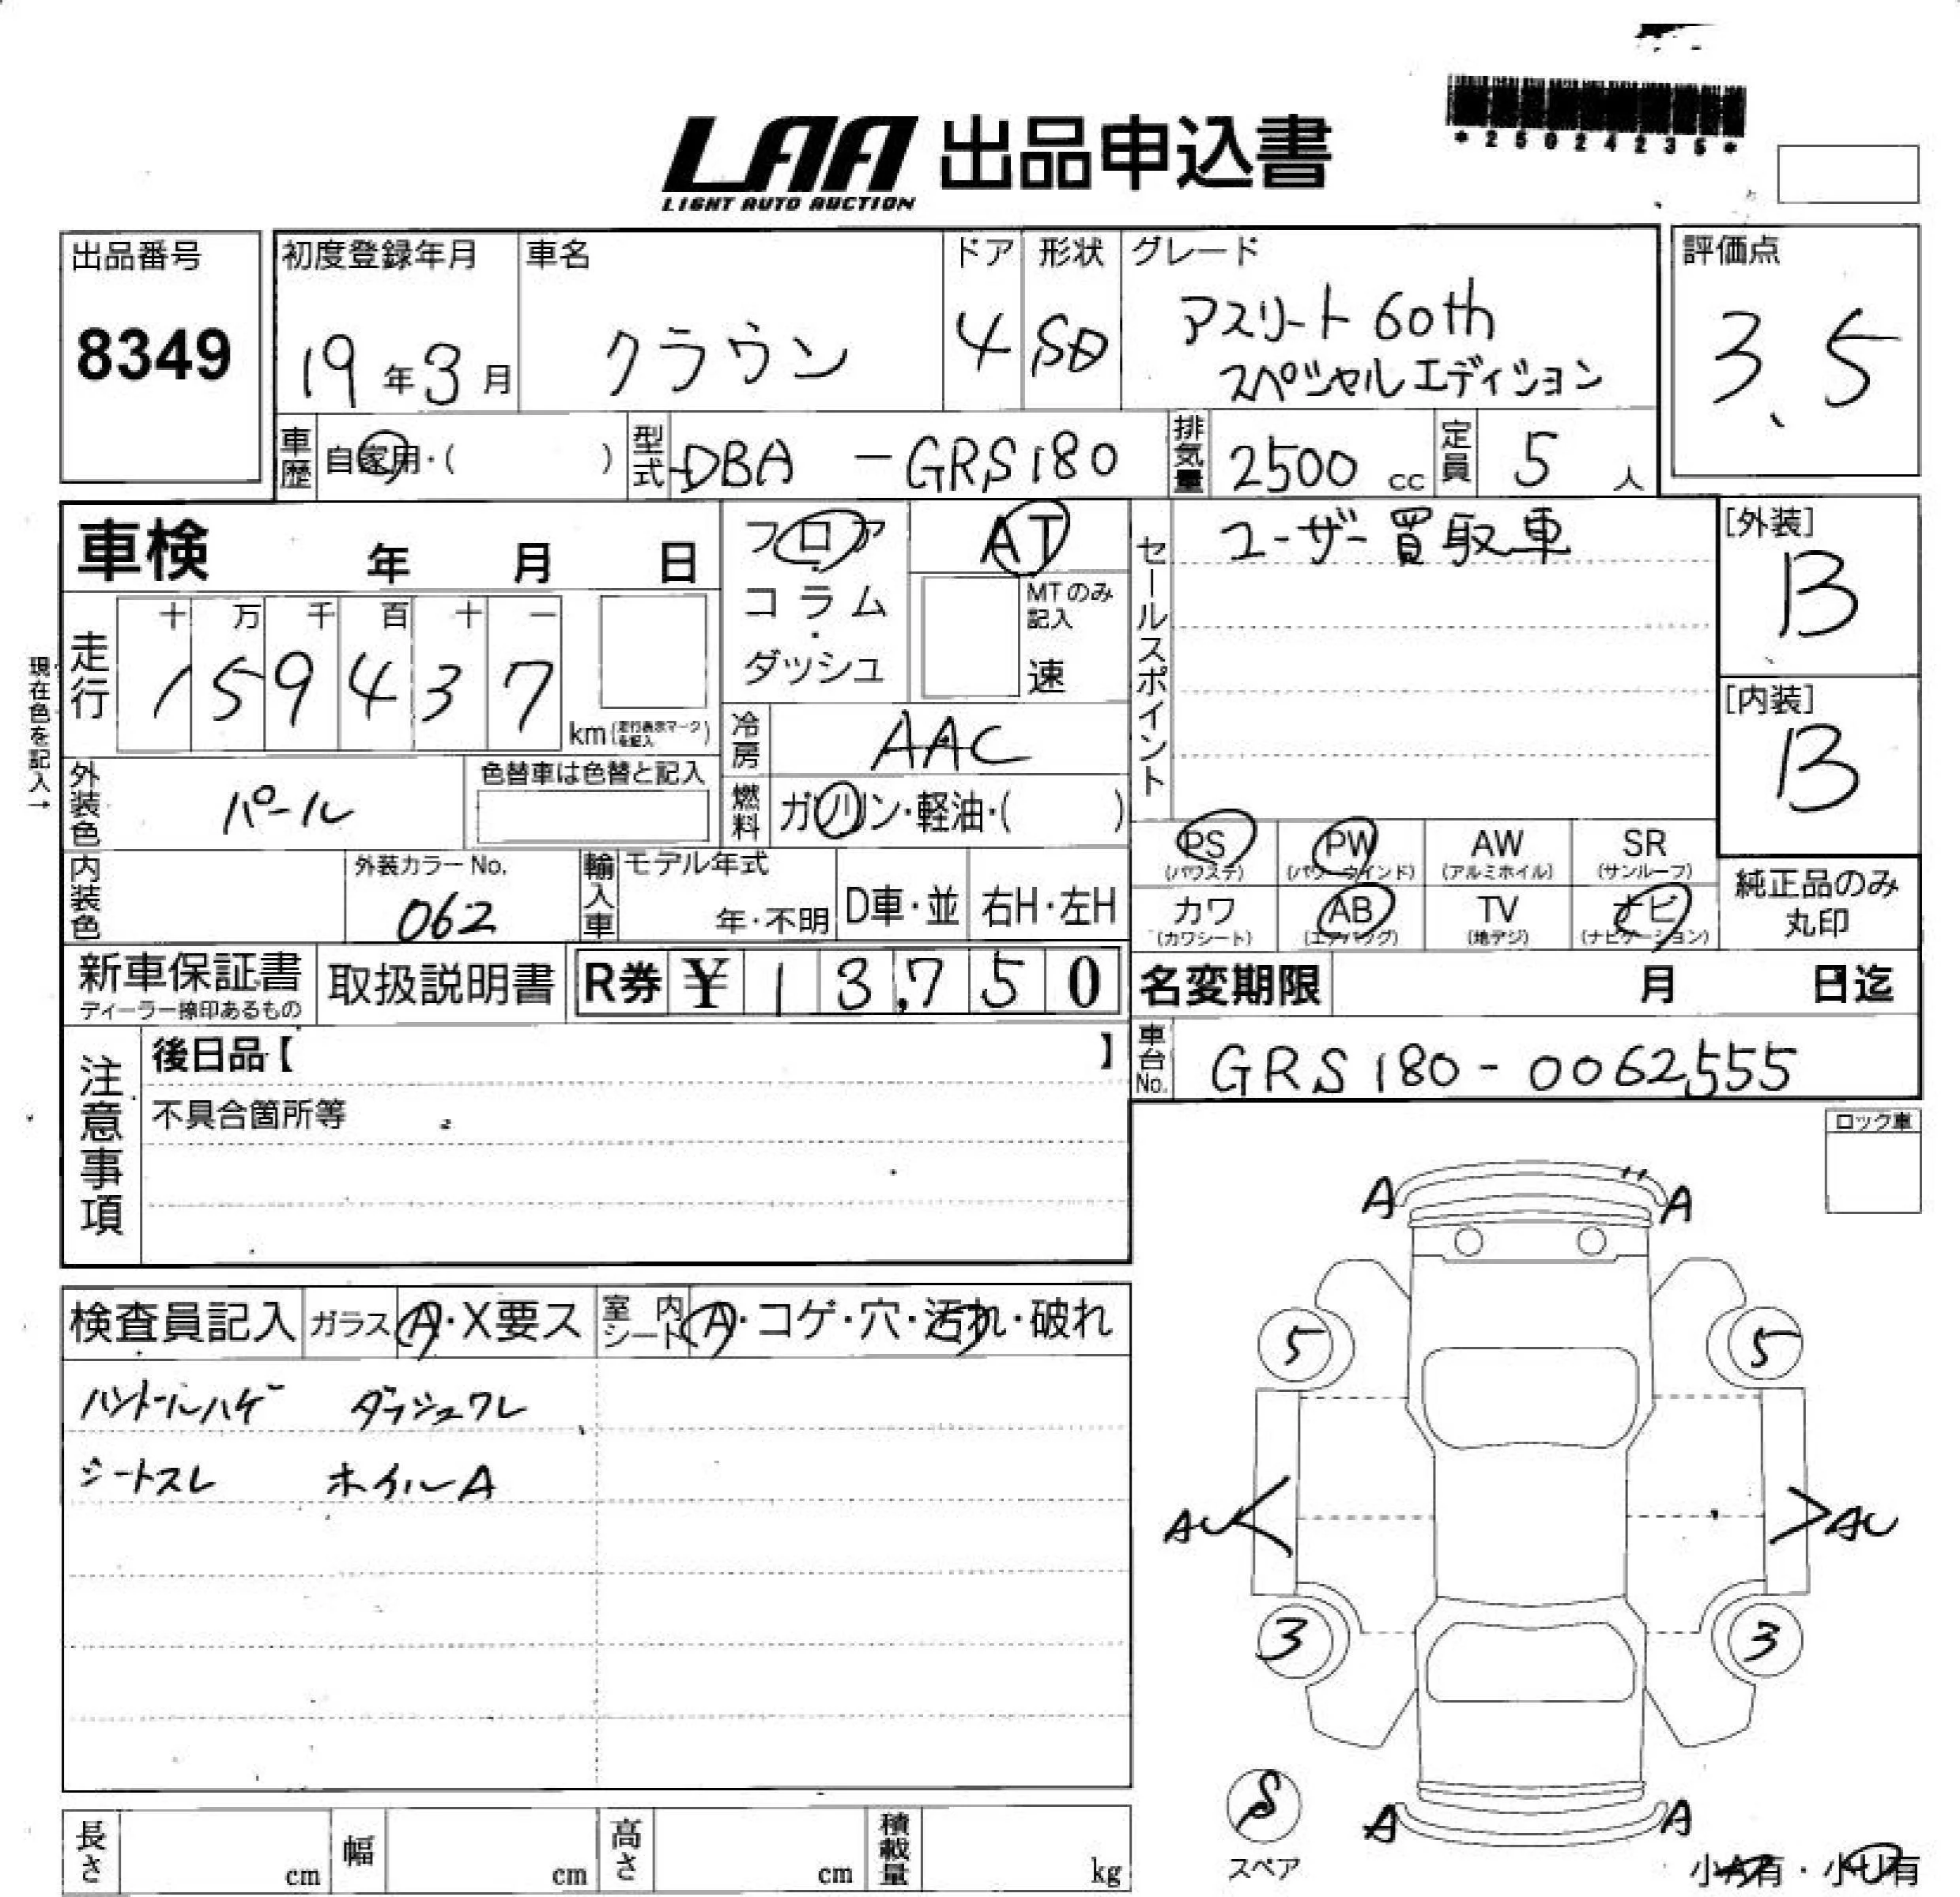 *25024235*
LAA 出品申込書
LIGHT AUTO AUCTION
出品番号
8349
初度登録年月
19年3月
車名
クラウン
ドア
4
形状
SD
グレード
アスリート 60th
スペシャルエディション
評価点
3.5
車歴
自家用・( )
型式
DBA - GRS180
排気量
2500 cc
定員
5 人
車検 年 月 日
フロア
コラム
・
ダッシュ
AT
MTのみ
記入
速
セールスポイント
ユーザー買取車
[外装]
B
[内装]
B
現在色を記入→
走行
十 万 千 百 十 一
1 5 9 4 3 7
km (走行表示マークを記入)
冷房
AAC
外装色
パール
色替車は色替と記入
燃料
ガソリン・軽油・( )
内装色
外装カラーNo.
062
輸入車
モデル年式
年・不明
D車・並
右H・左H
PS PW AW SR
(パワステ) (パワーウインド) (アルミホイル) (サンルーフ)
カワ AB TV ナビ
(カワシート) (エアバッグ) (地デジ) (ナビゲーション)
純正品のみ
丸印
新車保証書
ディーラー捺印あるもの
取扱説明書
R券 ¥ 13,750
名変期限 月 日迄
車台No.
GRS180-0062555
注意事項
後日品【 】
不具合箇所等
ロック車
検査員記入 ガラス A・X要ス 室内シート A・コゲ・穴・汚れ・破れ
ハンドルハゲ ダッシュワレ
シートスレ ホイルA
A A
5 5
AU AU
3 3
S
スペア
A A
小A有・小U有
長さ cm 幅 cm 高さ cm 積載量 kg